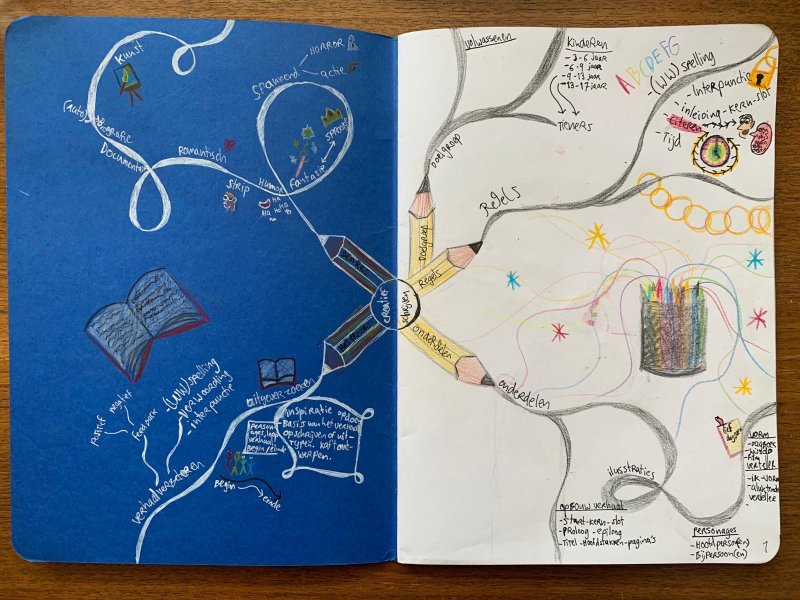 Kunst
(auto)biografie
Documentair
Romantisch
Strip
Humor
HA
HA HA
Spannend
HORROR
actie
Fantasie
sprookje
creatief
schrijven
volwassenen
Kinderen
- 6-9 jaar
- 9-13 jaar
- 13-17 jaar
Tieners
Doelgroep
Doelgroep
ABCDEFG
- (WW) spelling
- Interpunctie
- inleiding-kern-slot
- Citeren
- Tijd
Regels
Regels
onderdelen
onderdelen
ilustraties
opbouw verhaal
- Start-kern-slot
- Proloog-epiloog
- Titel-Hoofdstukken-pagina's
personages
- Hoofdperso(o)n(en)
- Bijpersoon(en)
vorm
verteller
- ik-vorm
1
uitgever zoeken
inspiratie opdoen
- Basis van het verhaal
opschrijven of uit-
typen. kaft ont-
werpen.
Begin
einde
verhaal verbeteren
- (WW) spelling
- verwoording
- interpunctie
Feedback
Positief
negatief